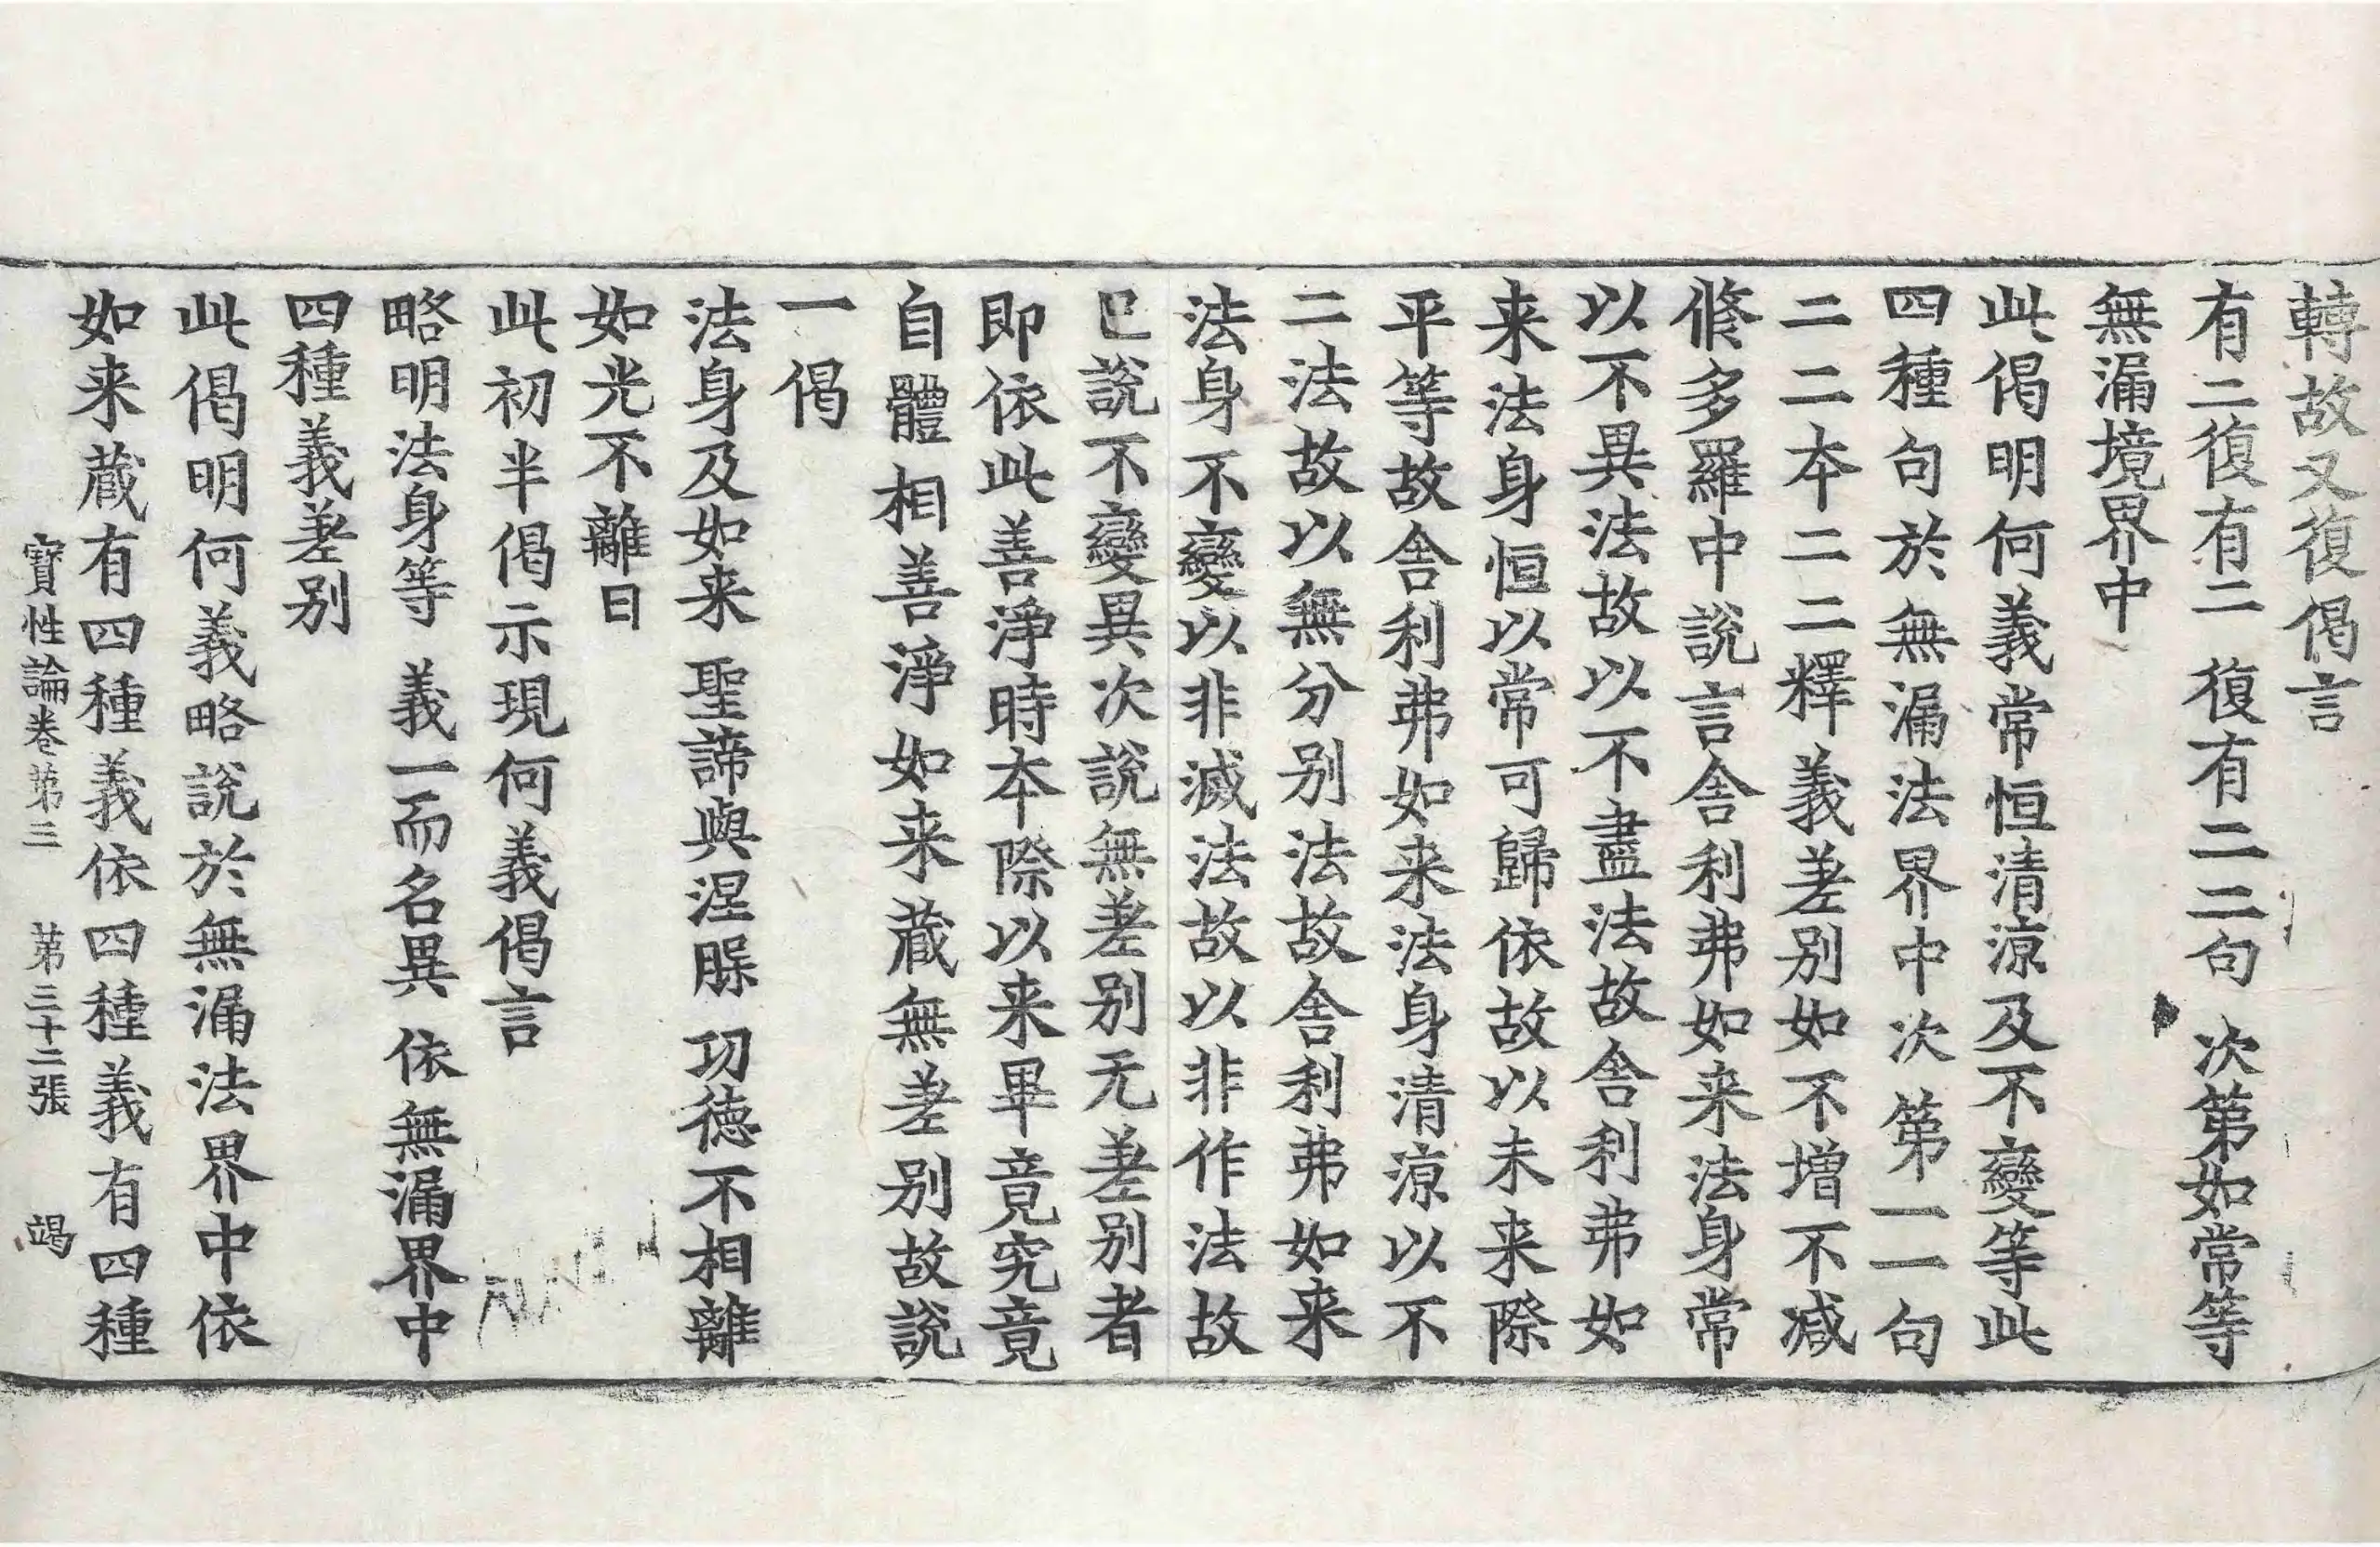 轉故又復偈言
有二復有二　復有二二句　次第如常等
無漏境界中
此偈明何義常恒清涼及不變等此
四種句於無漏法界中次第一一句
二二本二二釋義差别如不增不減
脩多羅中說言舎利弗如来法身常
以不異法故以不盡法故舎利弗如
来法身恒以常可歸依故以未来際
平等故舎利弗如来法身清涼以不
二法故以無分别法故舎利弗如来
法身不變以非滅法故以非作法故
已說不變異次說無差别无差别者
即依此善淨時本際以来畢竟究竟
自體相善淨如来蔵無差别故說
一偈
法身及如来　聖諦與涅脲　功徳不相離
如光不離日
此初半偈示現何義偈言
略明法身等　義一而名異　依無漏界中
四種義差别
此偈明何義略說於無漏法界中依
如来蔵有四種義依四種義有四種
寳性論卷第三　第三十二張　竭